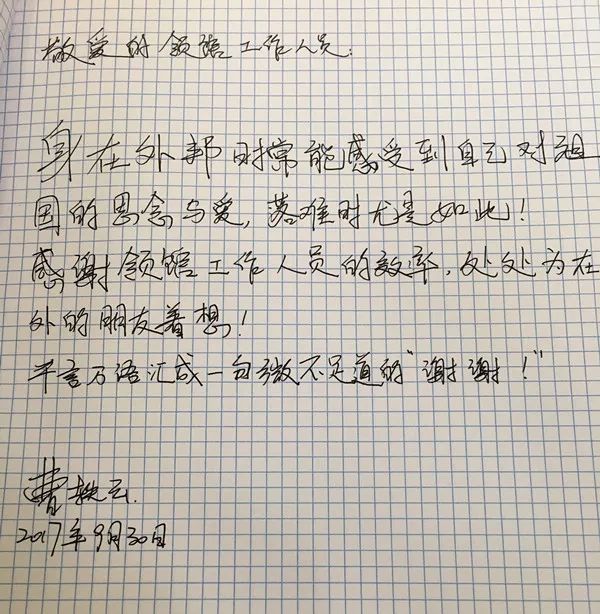 敬爱的领馆工作人员:
身在外邦时常能感受到自己对祖
国的思念与爱,落难时尤是如此!
感谢领馆工作人员的效率,处处为在
外的朋友着想!
千言万语汇成一句微不足道的“谢谢!”
曹云.
2017年9月30日